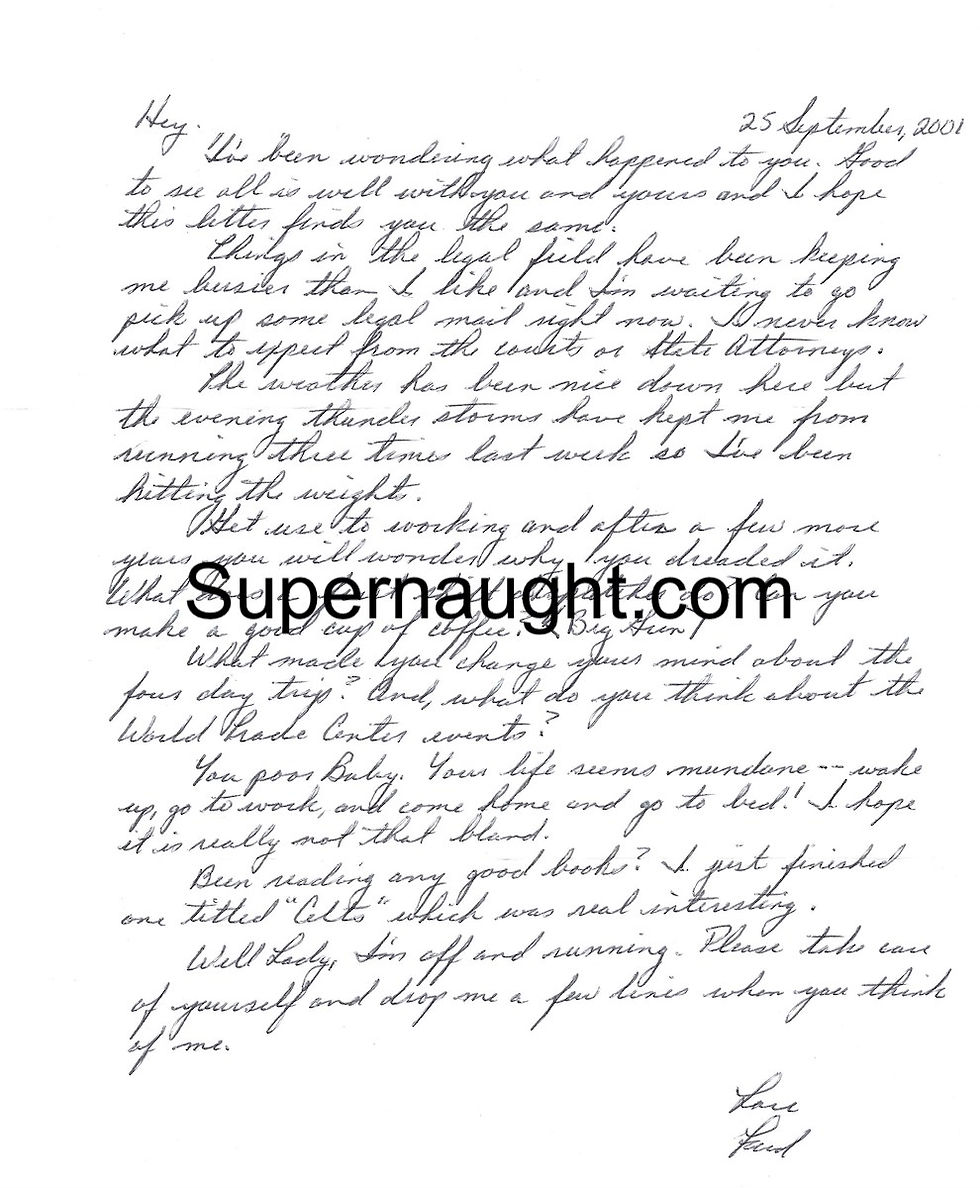 Hey.
25 September, 2001
"I've" been wondering what happened to you. Good
to see all is well with you and yours and I hope
this letter finds you the same.
Things in the legal field have been keeping
me busier than I like and I'm waiting to go
pick up some legal mail right now. I never know
what to expect from the courts or State Attorneys.
The weather has been nice down here but
the evening thunder storms have kept me from
running three times last week so I've been
hitting the weights.
Get use to working and after a few more
years you will wonder why you dreaded it.
What does a do? Can you
Supernaught.com
make a good cup of coffee? (Big Grin)
What made you change your mind about the
four day trip? And, what do you think about the
World Trade Center events?
You poor Baby. Your life seems mundane -- wake
up, go to work, and come home and go to bed! I hope
it is really not that bland.
Been reading any good books? I just finished
one titled "Celts" which was real interesting.
Well Lady, I'm off and running. Please take care
of yourself and drop me a few lines when you think
of me.
Love